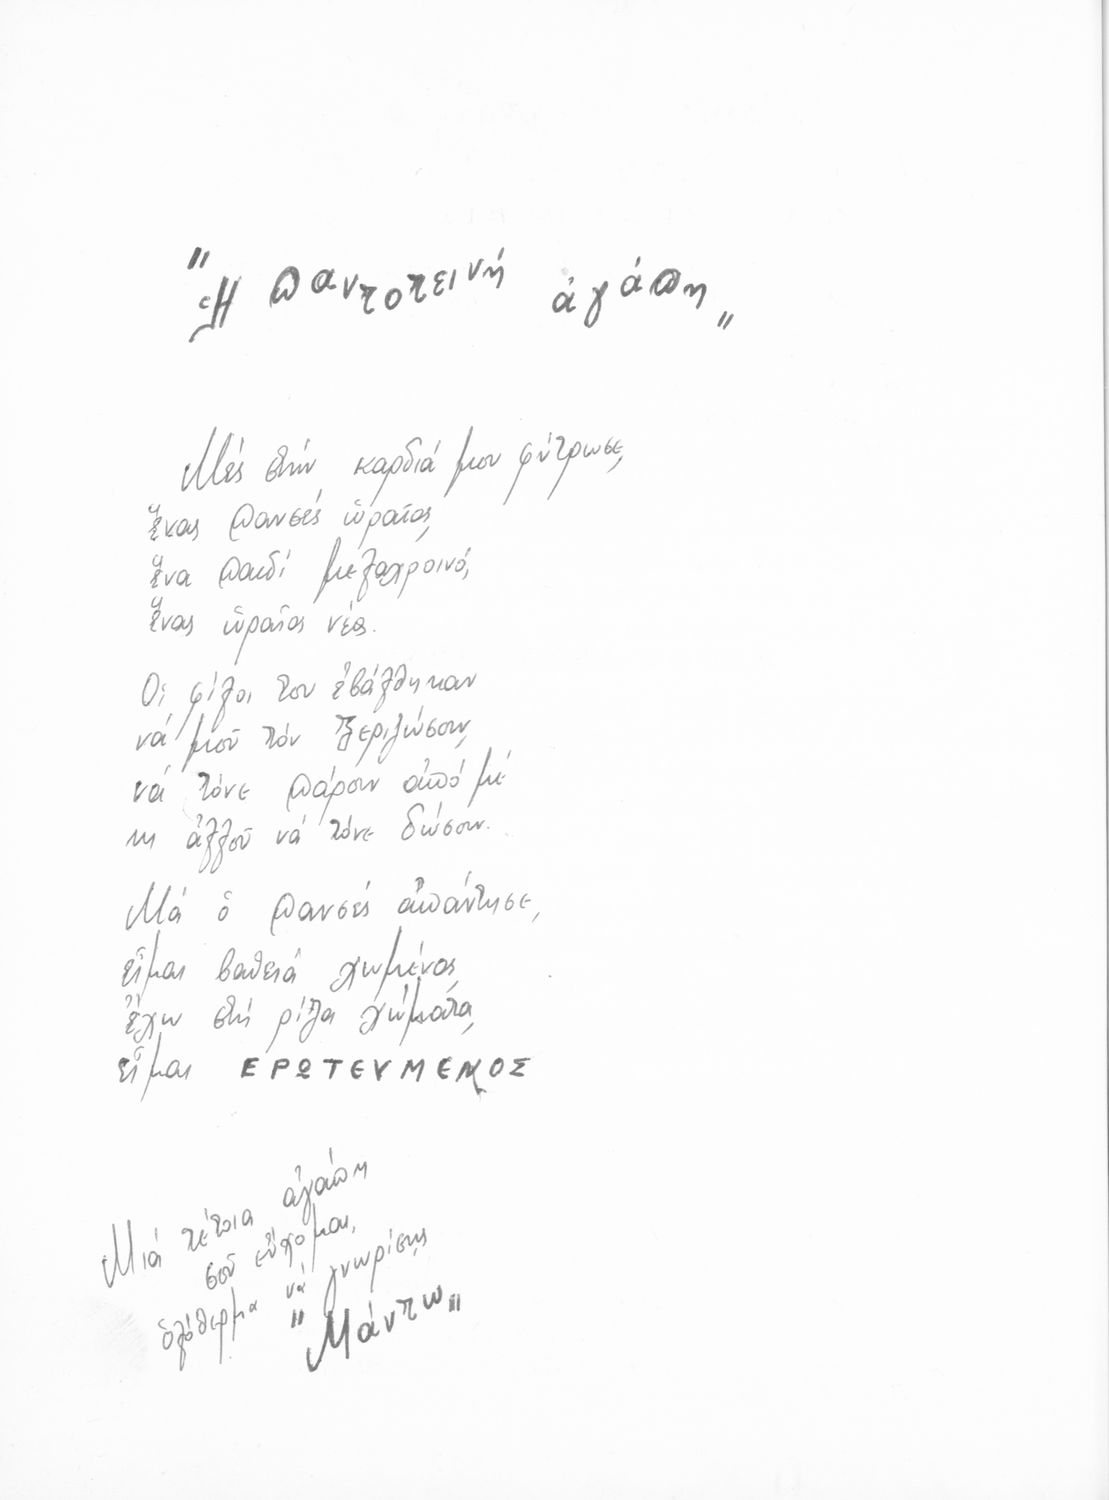 "Ἡ παντοτεινή ἀγάπη"
Μές στήν καρδιά μου φύτρωσε,
ἕνας πανσές ὡραῖος,
ἕνα παιδί μελαχροινό,
ἕνας ὡραῖος νέος.
Οἱ φίλοι του ἐβάλθηκαν
νά μοῦ τόν ξεριζώσουν,
νά τόνε πάρουν ἀπό μέ
κι ἀλλοῦ νά τόνε δώσουν.
Μά ὁ πανσές ἀπάντησε,
εἶμαι βαθειά χωμένος,
ἔχω στή ρίζα χώματα,
εἶμαι ΕΡΩΤΕΥΜΕΝΟΣ
Μιά τέτοια ἀγάπη
σοῦ εὔχομαι,
ὁλόθερμα νά γνωρίσης
"Μάντω"